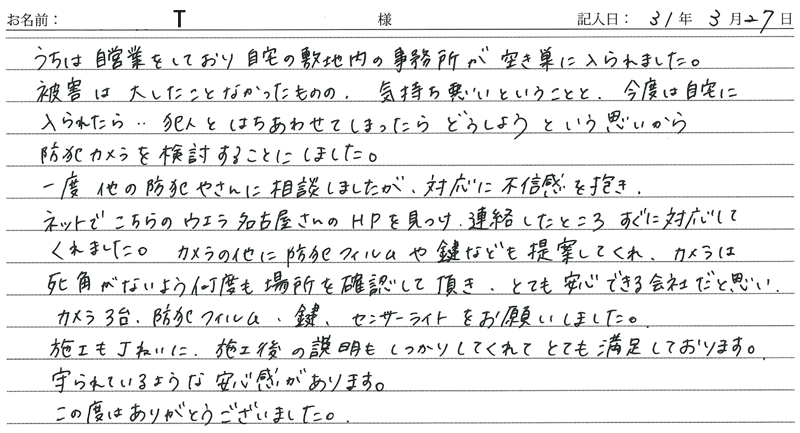 お名前： T 様 記入日： 31年 3月27日
うちは自営業をしており自宅の敷地内の事務所が空き巣に入られました。
被害は大したことなかったものの、気持ち悪いということと、今度は自宅に
入られたら‥犯人とはちあわせてしまったらどうしようという思いから
防犯カメラを検討することにしました。
一度他の防犯やさんに相談しましたが、対応に不信感を抱き、
ネットでこちらのウエラ名古屋さんのHPを見つけ、連絡したところすぐに対応して
くれました。カメラの他に防犯フィルムや鍵なども提案してくれ、カメラは
死角がないよう何度も場所を確認して頂き、とても安心できる会社だと思い、
カメラ3台、防犯フィルム、鍵、センサーライトをお願いしました。
施工も丁ねいに、施工後の説明もしっかりしてくれてとても満足しております。
守られているような安心感があります。
この度はありがとうございました。